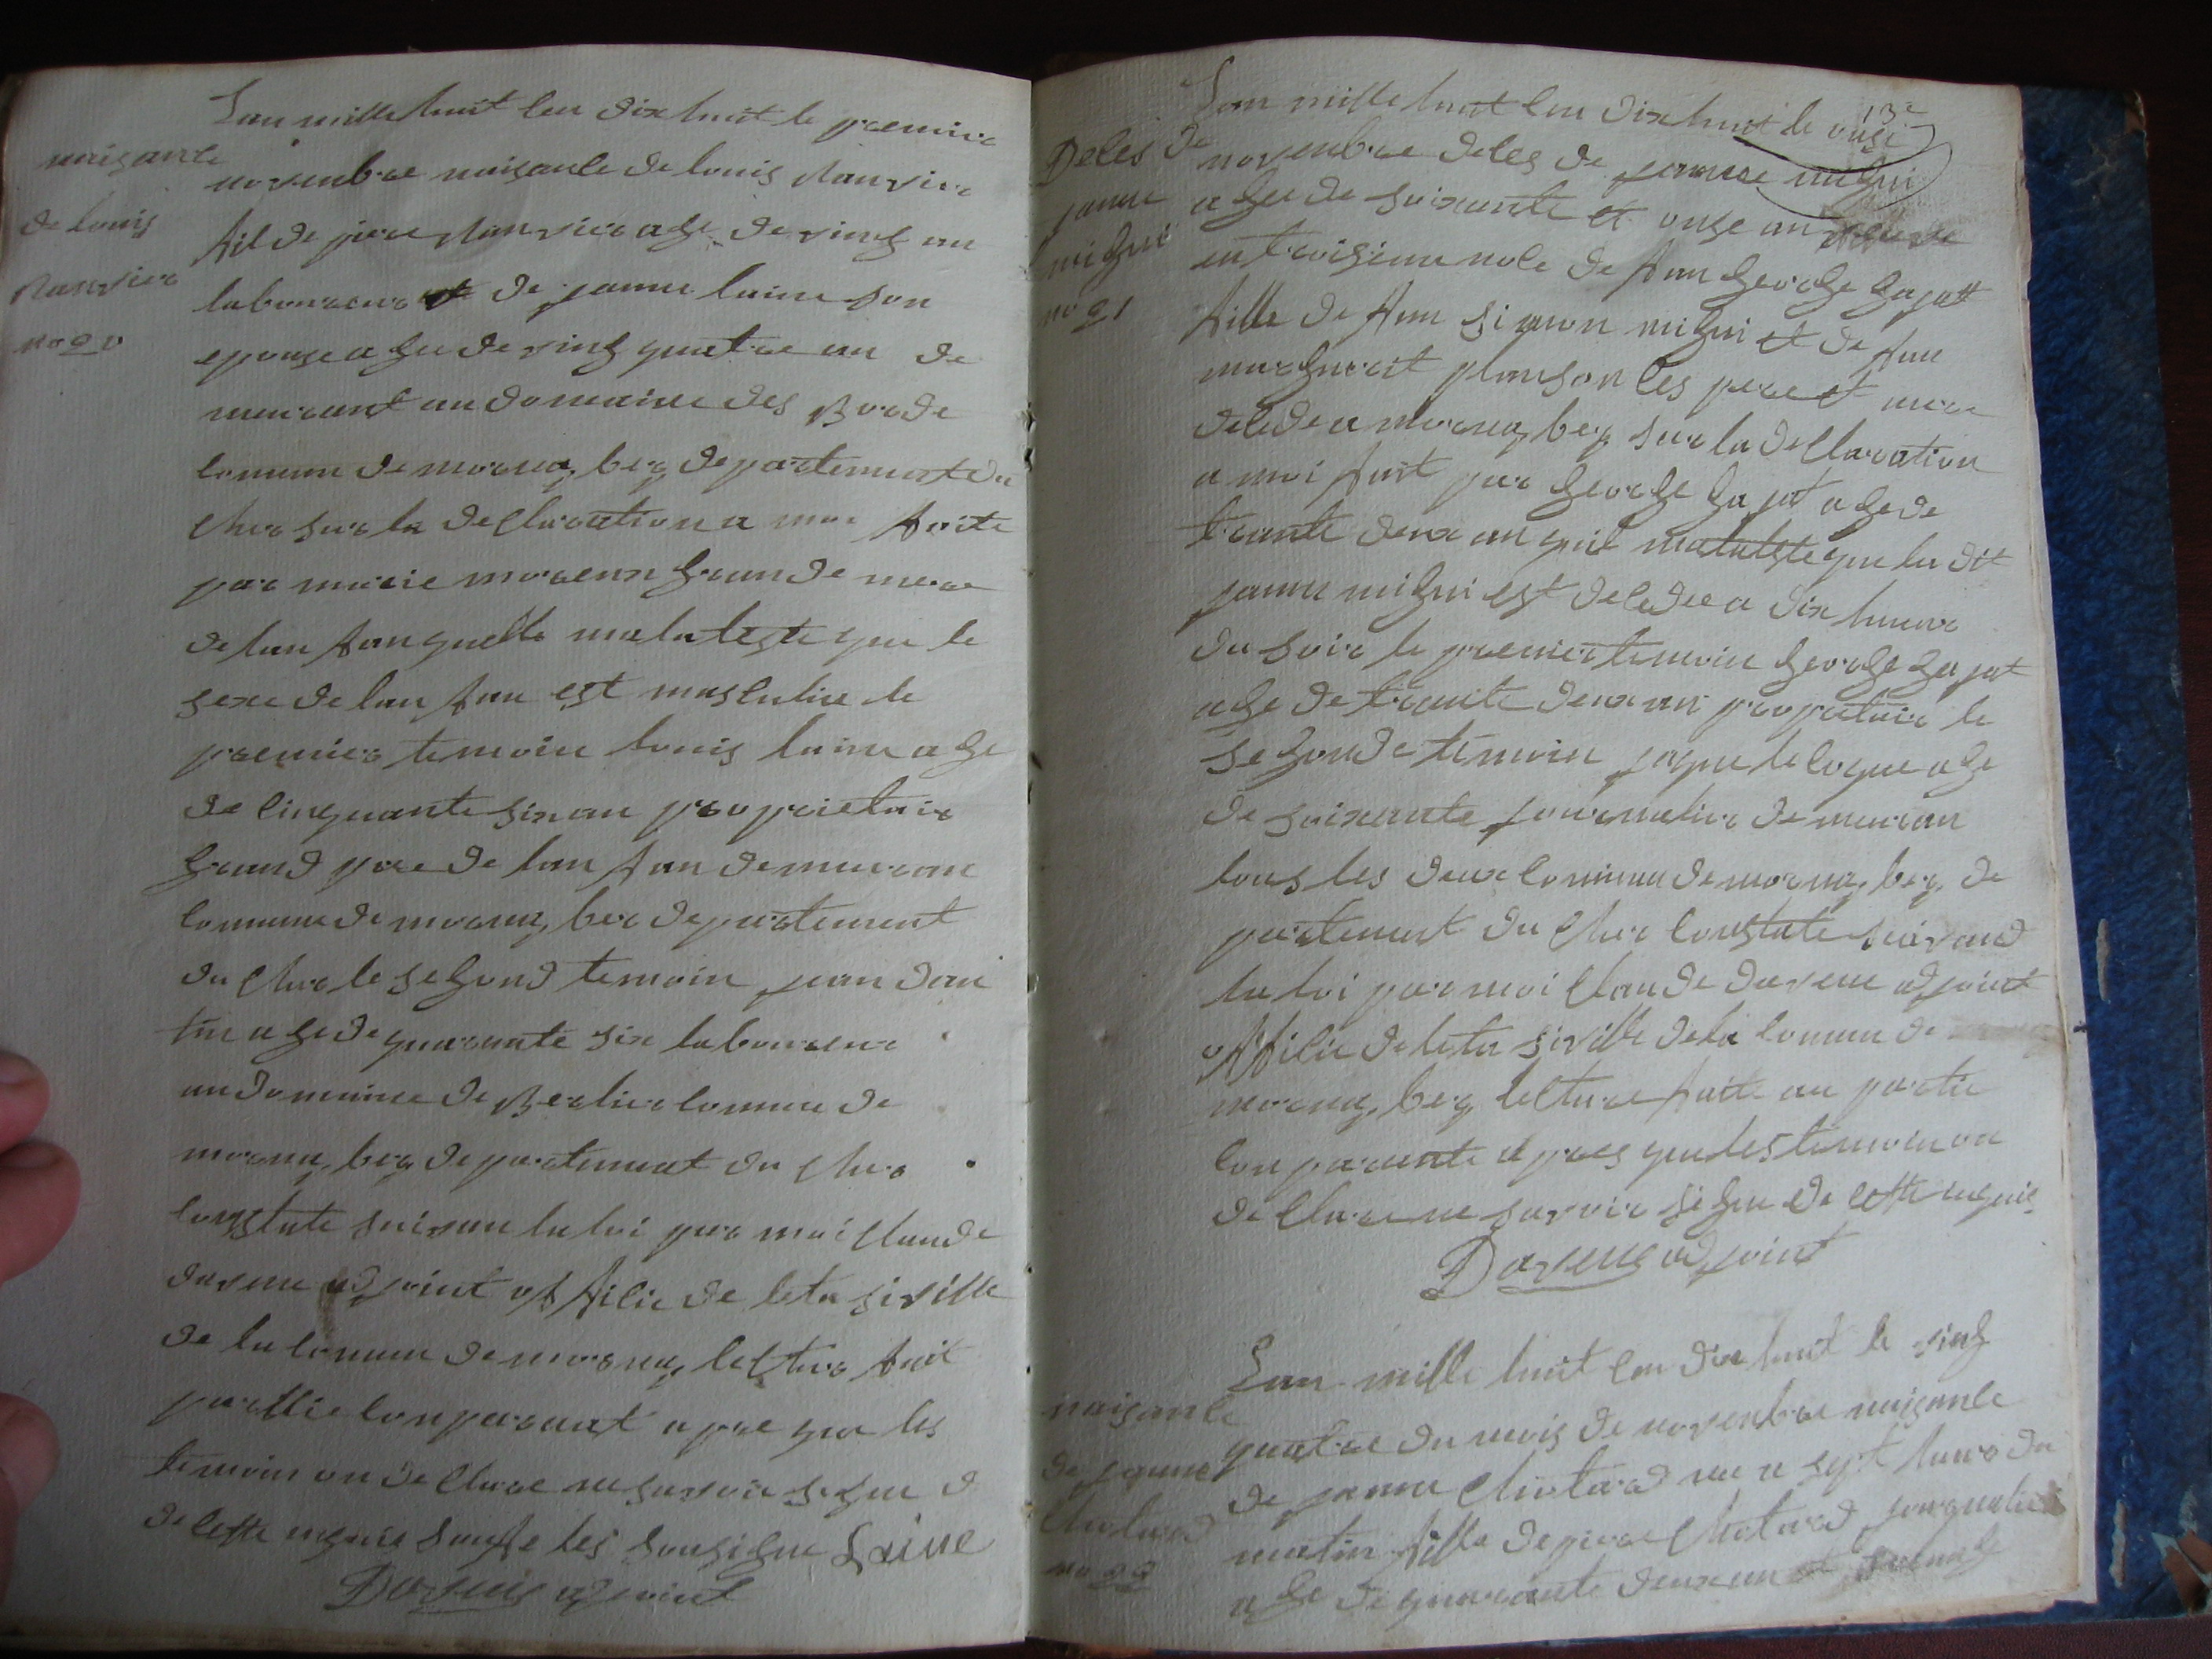 naisante
de louis
no 20
Lan mille huit cen dix huit le premier
novembre naisante de louis
fil de piere age de ving an
laboureur et de janne laine son
epouse agee de ving quatre an de
meurant au domaine des Borde
comune de mornay berg departement du
Cher sur la declaration a moi faite
par marie moreux grande mere
de lan fan quelle ma lateste que le
sexe de lan fan est masculin le
premier temoin louis laine age
de cinquante six an proprietair
grand pere de lan fan demeuran
comune de mornay ber departement
du Cher le segond temoin jean dau
fin age de quarante six laboureur
au domaine de Berlier comune de
mornay berg departement du Cher
constate suivan la loi par moi Claude
davene adjoint offisie de leta siville
de la comune de mornay lecture fait
partie conparant apre que les
temoin on declare ne savoir signe de
de cette enquis soufse les sousigne Laine
Davene adjoint
13e
Deces de
janne
migni
no 21
Lan mille huit cen dix huit le onse
novembre deces de janne migni
agee de soixante et onze an
en troisieme nose de feu george gajat
fille de feu simon migni et de feu
margurit ses pere et mere
decedee a mornay berg sur la declaration
a moi fait par george gajat age de
trante deux an quil matateste que la dit
janne migni est decedee a dix heure
du soir le premier temoin george gajat
age de trante deux an propietair le
segonde temoin jaque age
de soixante journalier demeuran
tous les deux comune de mornay berg de
partement du Cher constate suivand
la loi par moi Claude davene adjoint
offisie de leta siville de la comune de
mornay berg lecture fait au partie
conparante apres que les temoin on
declare ne savoir signe de cette enquis
Davene adjoint
naisante
de janne
Chotard
no 22
Lan mille huit cen dix huit le ving
quatre du mois de novenbre naisante
de janne Chotard nee a sept heure du
matin fille de piere Chotard journalier
age de quarante deux an et